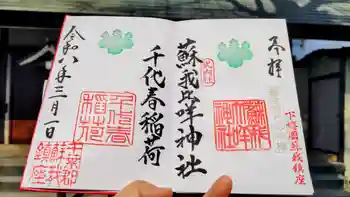 奉拝
下総国蘇我鎮座
蘇我比咩神社
千代春稲荷
千代春稲荷
令和八年三月一日
千葉郡
蘇我
鎮座